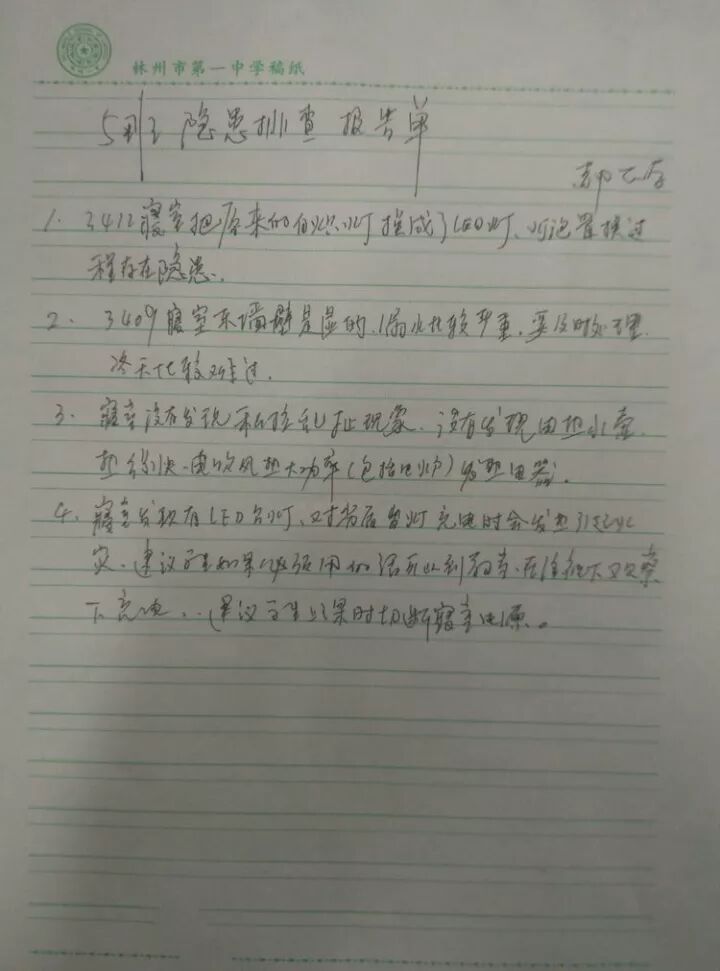 林州市第一中学稿纸
5班 隐患排查报告单
郭
1. 3412寝室把原来的白炽灯换成了LED灯、灯泡置换过
程存在隐患.
2. 3409寝室东墙壁是湿的,漏水比较严重,要及时处理.
冬天比较难过.
3. 寝室没有发现私拉乱扯现象.没有发现电热水壶.
热得快.电吹风热大功率(包括电炉)发热电器.
4. 寝室发现有LED台灯、对书后台灯充电时会发热引起火
灾、建议学生如果必须用的话可以到教室.在
下充电..建议学生上课时切断寝室电源。